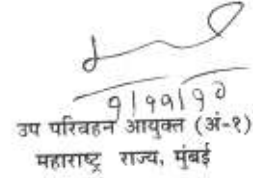 ९/११/१०
उप परिवहन आयुक्त (अं-१)
महाराष्ट्र राज्य, मुंबई